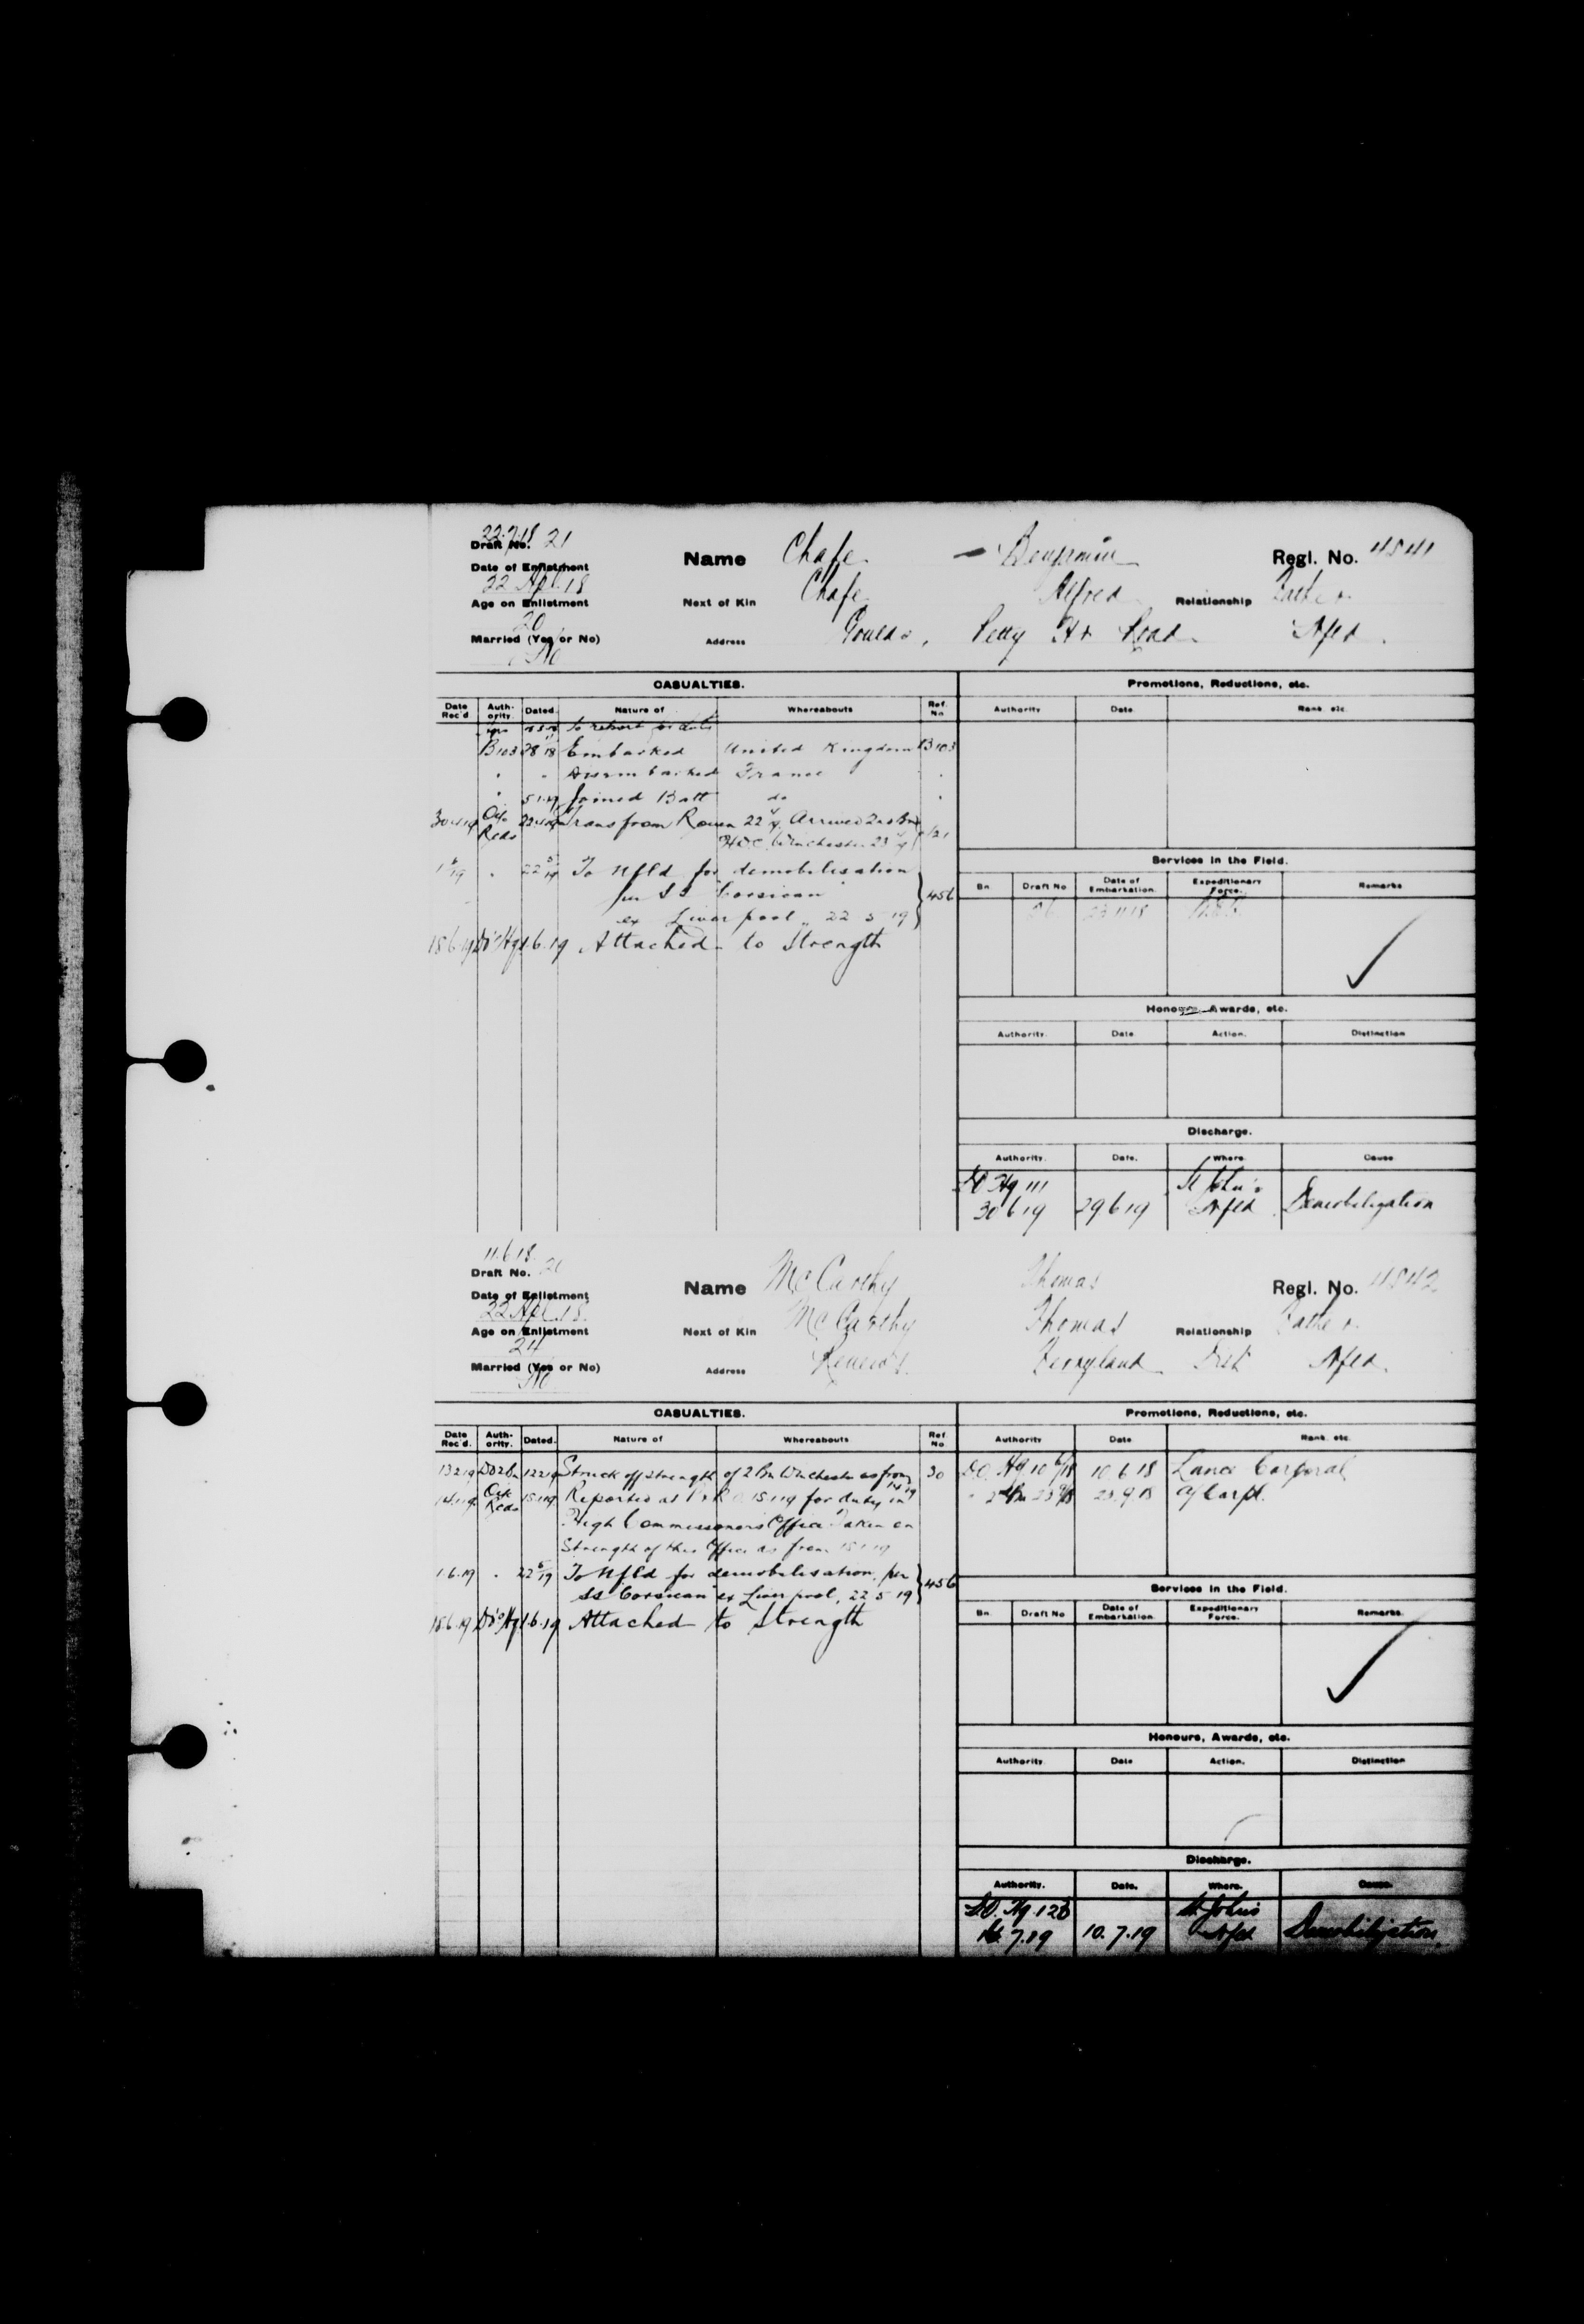 22.7.18
Draft No. 21
Name Chafe Benjamin Regl. No. 4541
Date of Enlistment
22 Apl. 18
Next of Kin Chafe Alfred Relationship Father
Age on Enlistment
20
Address Goulds, Petty Hr Road Nfld.
Married (Yes or No)
No
CASUALTIES. Promotions, Reductions, etc.
Date Rec'd. Auth-ority. Dated. Nature of Whereabouts Ref. No Authority Date Rank. etc.
to report for duty
B103 28 11 18 Embarked United Kingdom B103
" " Disembarked France "
" 5 1 19 Joined Batt do "
30 4 19 Reds 22 4 19 Trans from Rouen 22 4/19 Arrived 2nd Bn
H.D.C. Winchester 23 4/19
1 6 19 " 22 5 19 To Nfld for demobilisation
per S S Corsican
ex Liverpool, 22 5 19 } 456
18.6.19 DO Hq 1.6.19 Attached to Strength
Services in the Field.
Bn. Draft No Date of Embarkation. Expeditionary Force. Remarks
23 11 18
Honours, Awards, etc.
Authority. Date Action. Distinction
Discharge.
Authority. Date. Where. Cause
DO Hq 111 St John's
30 6 19 29 6 19 Nfld Demobilization
11.6.18.
Draft No. 21
Name McCarthy Thomas Regl. No. 4542
Date of Enlistment
22 Apl. 18.
Next of Kin McCarthy Thomas Relationship Father
Age on Enlistment
24
Address Renews. Ferryland Dist Nfld.
Married (Yes or No)
No
CASUALTIES. Promotions, Reductions, etc.
Date Rec'd. Auth-ority. Dated. Nature of Whereabouts Ref. No Authority Date Rank. etc.
13 2 19 DO 2 Bn 12 2 19 Struck off strength of 2 Bn Winchester as from 14 1 19 30
DO. Hq 10 6/18 10 6 18 Lance Corporal
Reds 15 1 19 Reported at P & R O 15 1 19 for duty in
2 Bn 23 9/18 23.9.18 a/Corpl.
High Commissioners Office Taken on
Strength of this Office as from 15 1 19
1.6.19 " 22 5 19 To Nfld for demobilisation, per
SS "Corsican" ex Liverpool, 22 5 19 } 456
18.6.19 DO Hq 1.6.19 Attached to Strength
Services in the Field.
Bn. Draft No Date of Embarkation. Expeditionary Force. Remarks.
Honours, Awards, etc.
Authority. Date Action. Distinction
Discharge.
Authority. Date. Where. Cause.
DO. Hq 126 St. John's
7.19 10.7.19 Nfld Demobilization.